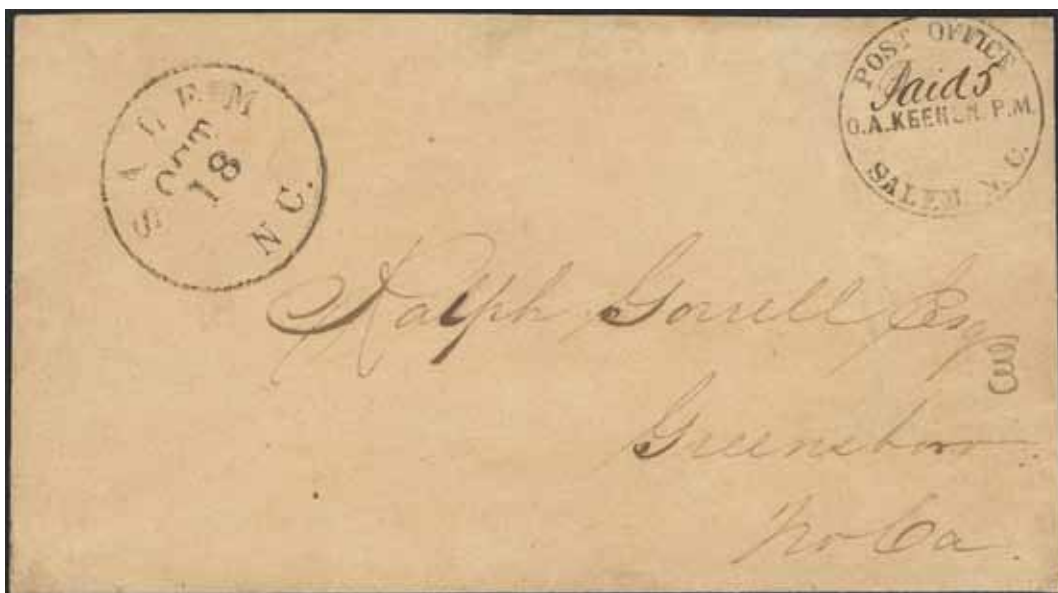 SALEM N C.
OCT
18
POST OFFICE
Paid 5
O.A. KEEHLN. P.M.
SALEM N. C.
Ralph Gorrell Esq
Greensboro
No Ca.